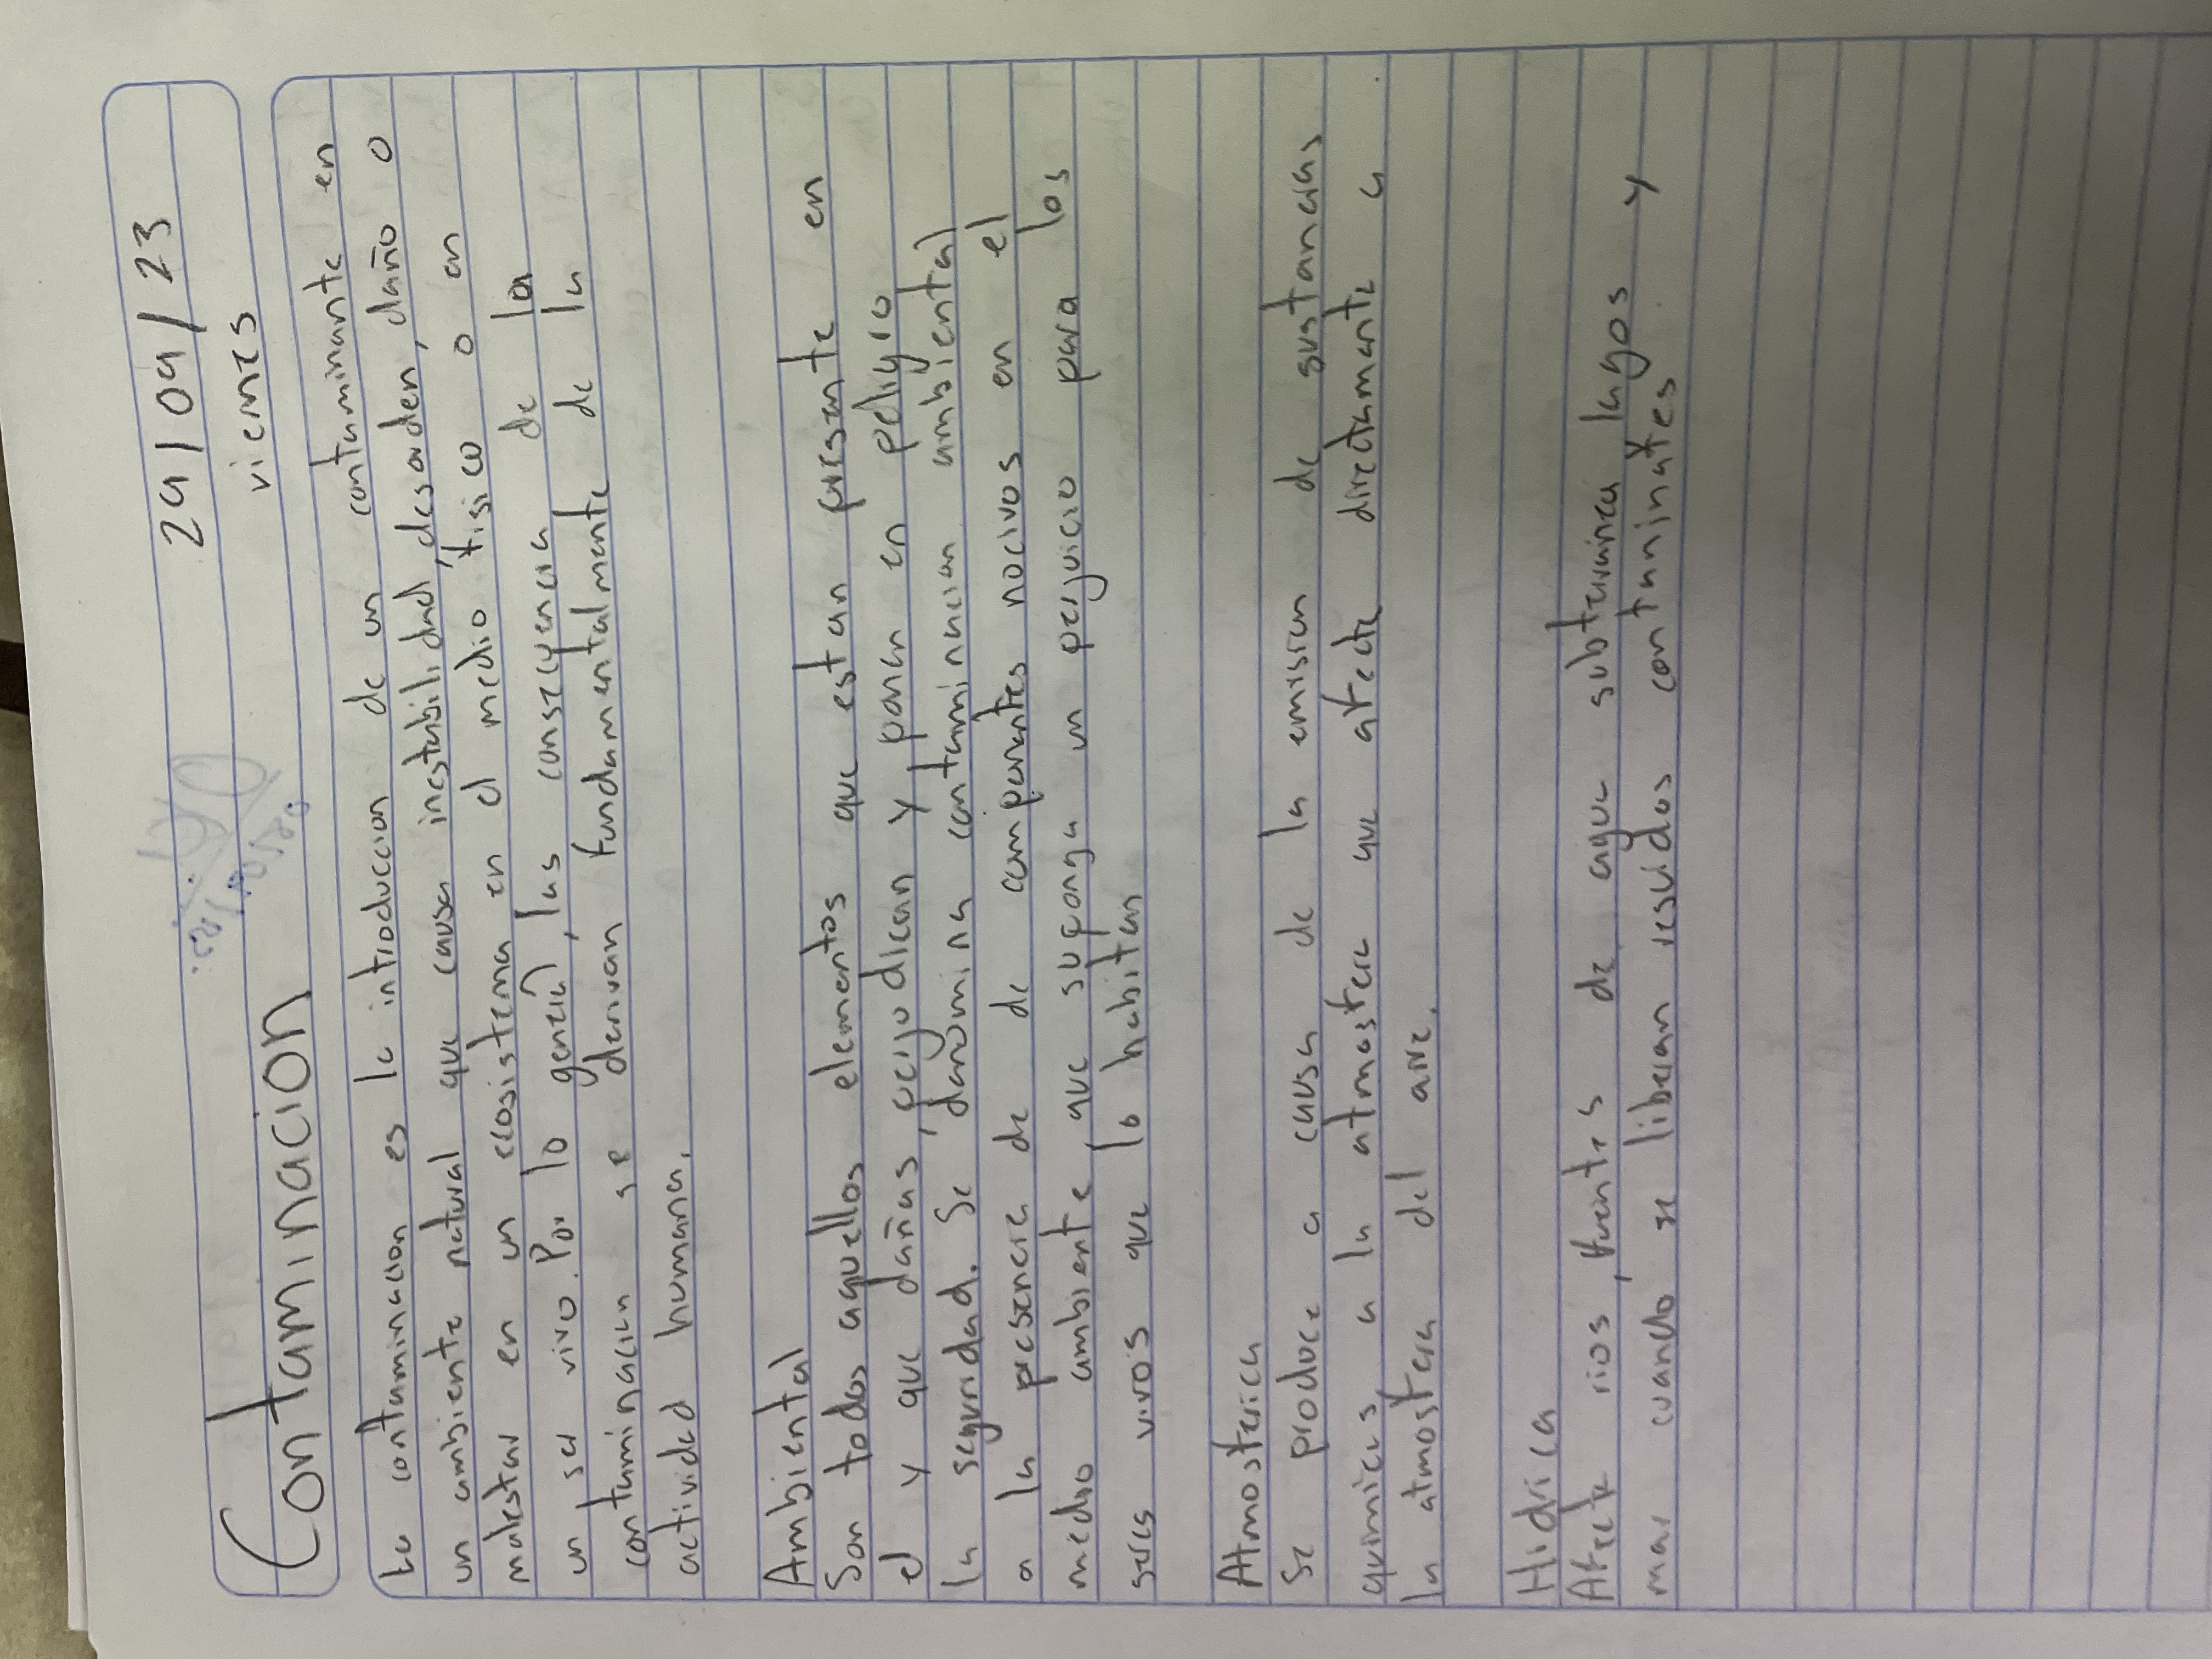 29/09/23
Contaminacion
viernes
La contaminacion es la introduccion de un contaminante en
un ambiente natural que causa inestabilidad, desorden, daño o
malestar en un ecosistema en el medio fisico o en
un ser vivo. Por lo general, las consecuencia de la
contaminacion se derivan fundamentalmente de la
actividad humana.
Ambiental
Son todos aquellos elementos que estan presente en
el y que dañas, perjudican y ponen en peligro
la seguridad. Se denomina contaminacion ambiental
a la presencia de de componentes nocivos en el
medio ambiente, que suponga un perjuicio para los
seres vivos que lo habitan
Atmosferica
Se produce a causa de la emision de sustancias
quimicas a la atmosfera que afecta directamente a
la atmosfera del aire.
Hidrica
Afecta rios, fuentes de agua subterranea lagos y
mar cuando se liberan resuidos contaninates